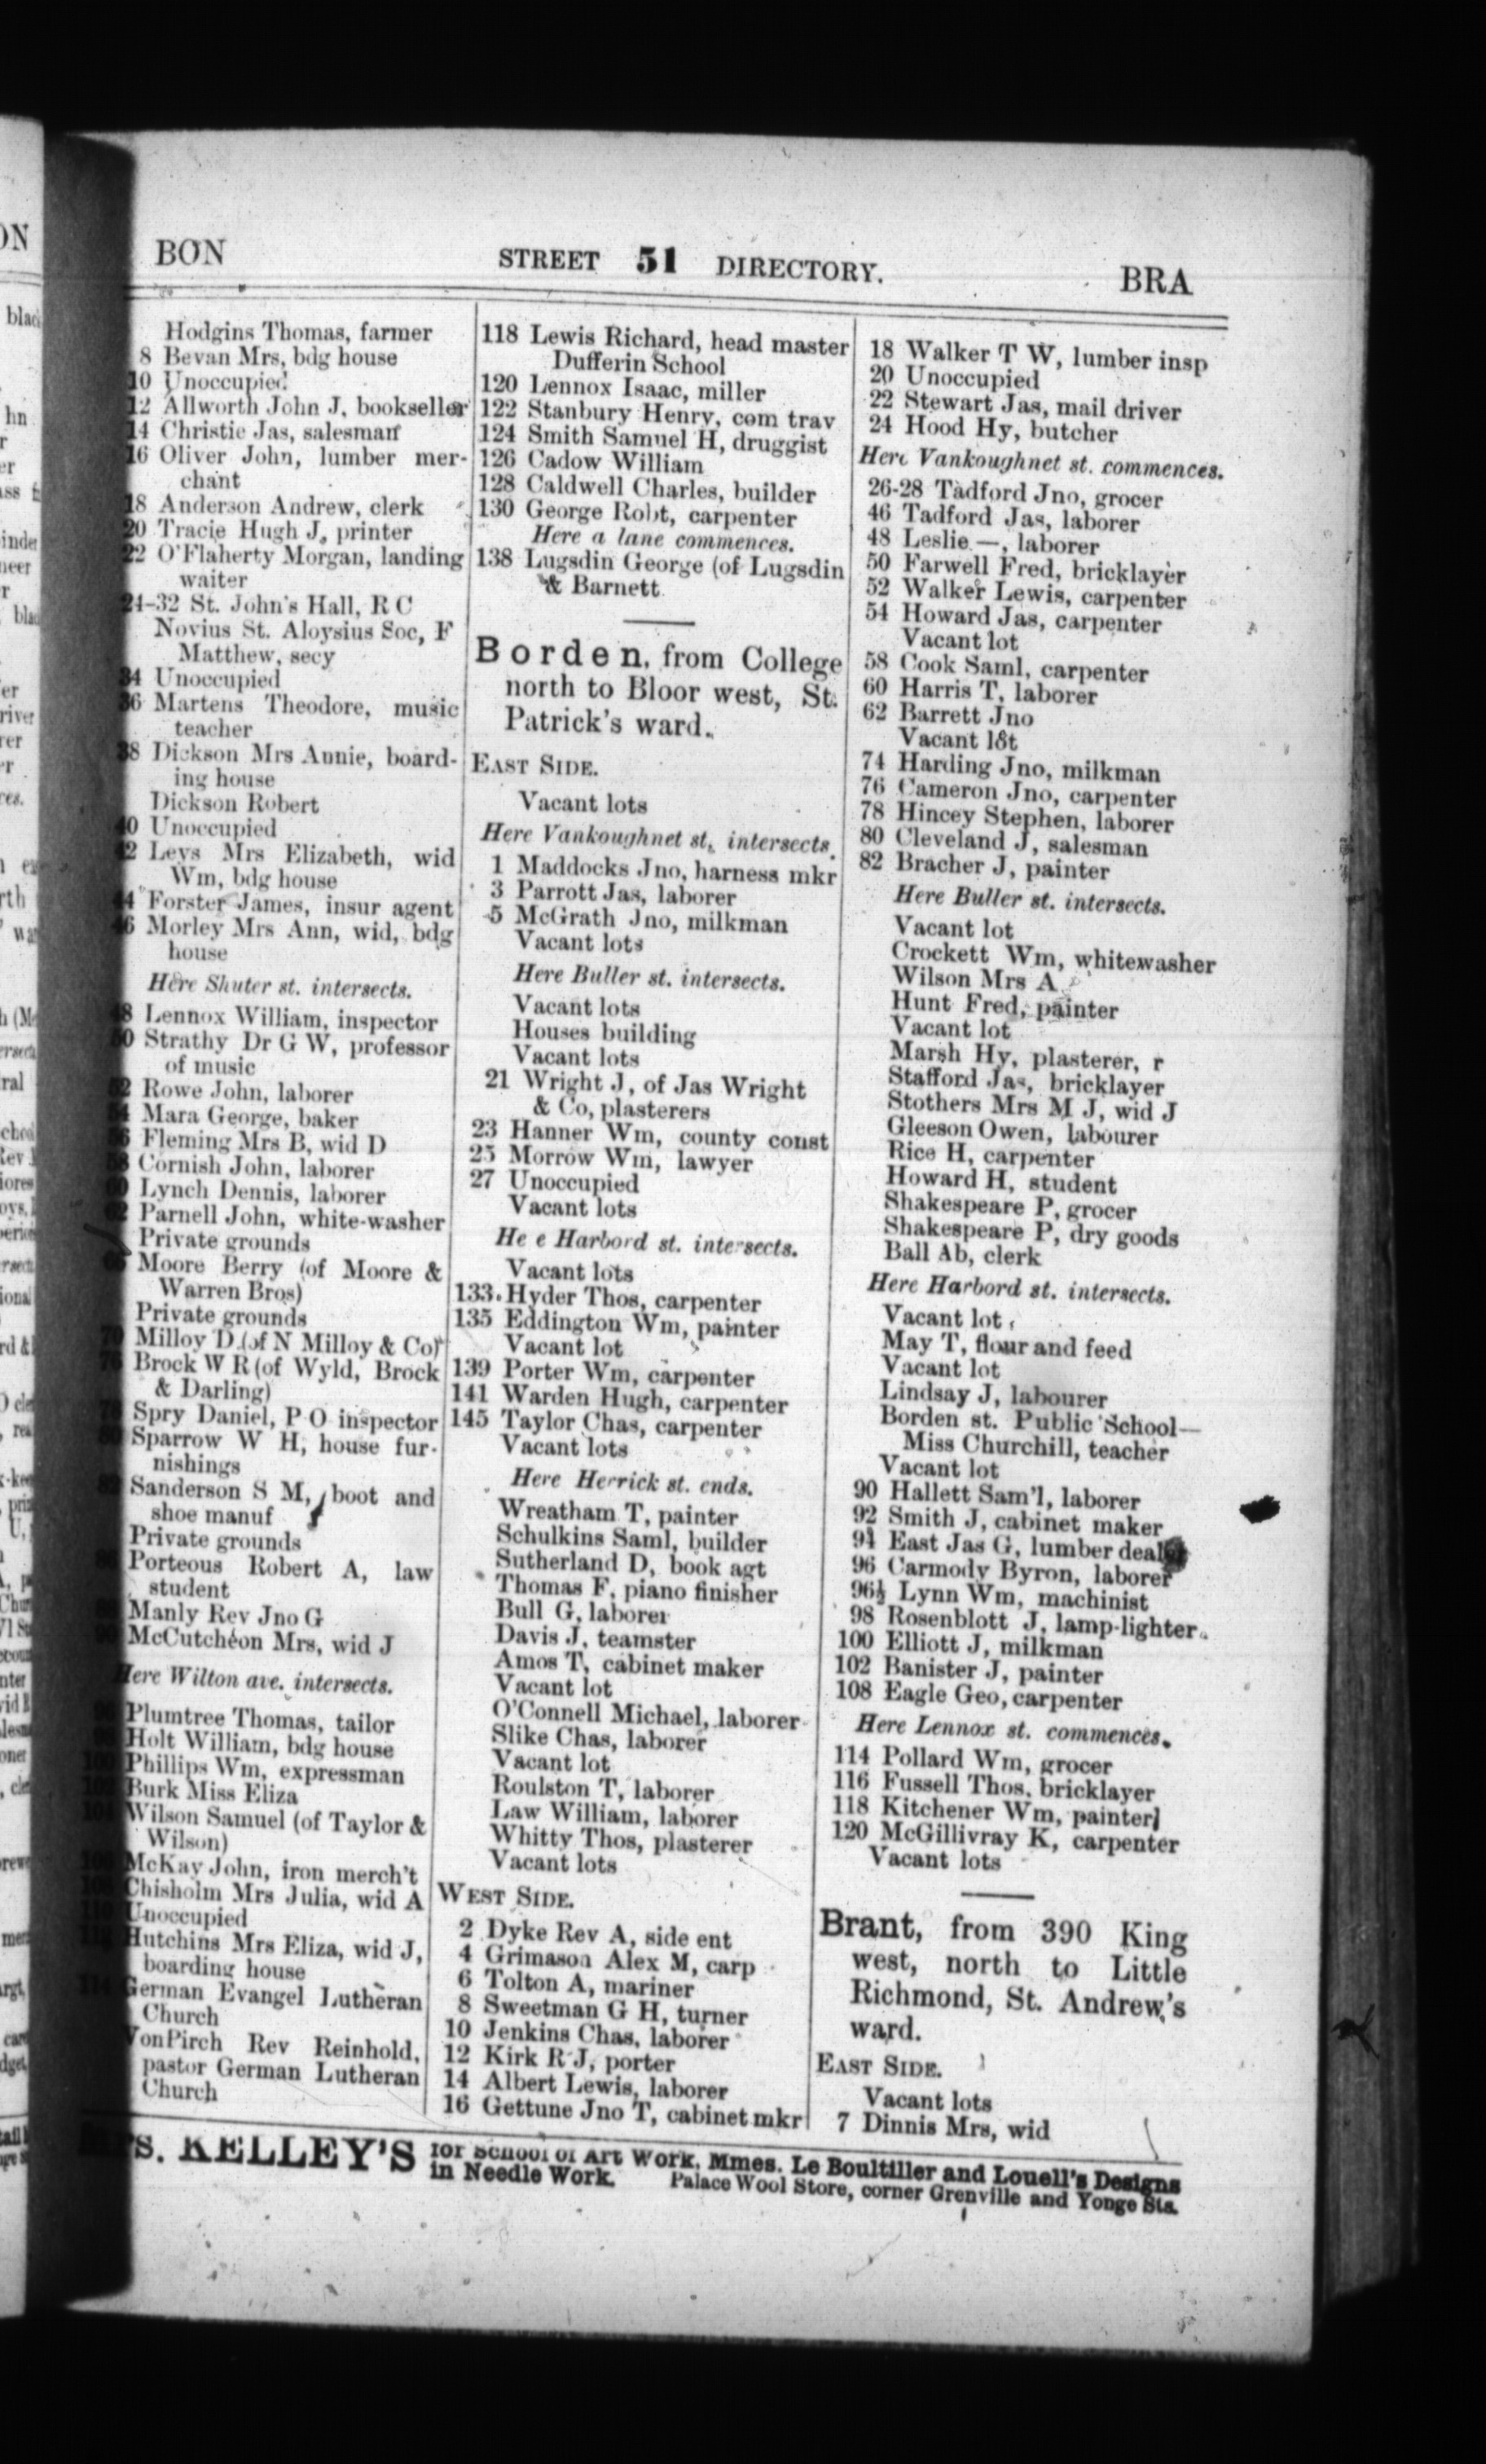 BON STREET 51 DIRECTORY. BRA
Hodgins Thomas, farmer
8 Bevan Mrs, bdg house
10 Unoccupied
12 Allworth John J, bookseller
14 Christie Jas, salesman
16 Oliver John, lumber mer-
chant
18 Anderson Andrew, clerk
20 Tracie Hugh J, printer
22 O'Flaherty Morgan, landing
waiter
24-32 St. John's Hall, R C
Novius St. Aloysius Soc, F
Matthew, secy
34 Unoccupied
36 Martens Theodore, music
teacher
38 Dickson Mrs Annie, board-
ing house
Dickson Robert
40 Unoccupied
42 Leys Mrs Elizabeth, wid
Wm, bdg house
44 Forster James, insur agent
46 Morley Mrs Ann, wid, bdg
house
Here Shuter st. intersects.
48 Lennox William, inspector
50 Strathy Dr G W, professor
of music
52 Rowe John, laborer
54 Mara George, baker
56 Fleming Mrs B, wid D
58 Cornish John, laborer
60 Lynch Dennis, laborer
62 Parnell John, white-washer
Private grounds
Moore Berry (of Moore &
Warren Bros)
Private grounds
70 Milloy D (of N Milloy & Co)
76 Brock W R (of Wyld, Brock
& Darling)
Spry Daniel, P O inspector
Sparrow W H, house fur-
nishings
Sanderson S M, boot and
shoe manuf
Private grounds
Porteous Robert A, law
student
Manly Rev Jno G
McCutcheon Mrs, wid J
Here Wilton ave. intersects.
Plumtree Thomas, tailor
Holt William, bdg house
Phillips Wm, expressman
Burk Miss Eliza
Wilson Samuel (of Taylor &
Wilson)
McKay John, iron merch't
Chisholm Mrs Julia, wid A
Unoccupied
Hutchins Mrs Eliza, wid J,
boarding house
114 German Evangel Lutheran
Church
VonPirch Rev Reinhold,
pastor German Lutheran
Church
118 Lewis Richard, head master
Dufferin School
120 Lennox Isaac, miller
122 Stanbury Henry, com trav
124 Smith Samuel H, druggist
126 Cadow William
128 Caldwell Charles, builder
130 George Robt, carpenter
Here a lane commences.
138 Lugsdin George (of Lugsdin
& Barnett
Borden, from College
north to Bloor west, St.
Patrick's ward.
EAST SIDE.
Vacant lots
Here Vankoughnet st, intersects.
1 Maddocks Jno, harness mkr
3 Parrott Jas, laborer
5 McGrath Jno, milkman
Vacant lots
Here Buller st. intersects.
Vacant lots
Houses building
Vacant lots
21 Wright J, of Jas Wright
& Co, plasterers
23 Hanner Wm, county const
25 Morrow Wm, lawyer
27 Unoccupied
Vacant lots
He e Harbord st. intersects.
Vacant lots
133 Hyder Thos, carpenter
135 Eddington Wm, painter
Vacant lot
139 Porter Wm, carpenter
141 Warden Hugh, carpenter
145 Taylor Chas, carpenter
Vacant lots
Here Herrick st. ends.
Wreatham T, painter
Schulkins Saml, builder
Sutherland D, book agt
Thomas F, piano finisher
Bull G, laborer
Davis J, teamster
Amos T, cabinet maker
Vacant lot
O'Connell Michael, laborer
Slike Chas, laborer
Vacant lot
Roulston T, laborer
Law William, laborer
Whitty Thos, plasterer
Vacant lots
WEST SIDE.
2 Dyke Rev A, side ent
4 Grimason Alex M, carp
6 Tolton A, mariner
8 Sweetman G H, turner
10 Jenkins Chas, laborer
12 Kirk R J, porter
14 Albert Lewis, laborer
16 Gettune Jno T, cabinet mkr
18 Walker T W, lumber insp
20 Unoccupied
22 Stewart Jas, mail driver
24 Hood Hy, butcher
Here Vankoughnet st. commences.
26-28 Tadford Jno, grocer
46 Tadford Jas, laborer
48 Leslie —, laborer
50 Farwell Fred, bricklayer
52 Walker Lewis, carpenter
54 Howard Jas, carpenter
Vacant lot
58 Cook Saml, carpenter
60 Harris T, laborer
62 Barrett Jno
Vacant lot
74 Harding Jno, milkman
76 Cameron Jno, carpenter
78 Hincey Stephen, laborer
80 Cleveland J, salesman
82 Bracher J, painter
Here Buller st. intersects.
Vacant lot
Crockett Wm, whitewasher
Wilson Mrs A
Hunt Fred, painter
Vacant lot
Marsh Hy, plasterer, r
Stafford Jas, bricklayer
Stothers Mrs M J, wid J
Gleeson Owen, labourer
Rice H, carpenter
Howard H, student
Shakespeare P, grocer
Shakespeare P, dry goods
Ball Ab, clerk
Here Harbord st. intersects.
Vacant lot
May T, flour and feed
Vacant lot
Lindsay J, labourer
Borden st. Public School—
Miss Churchill, teacher
Vacant lot
90 Hallett Sam'l, laborer
92 Smith J, cabinet maker
94 East Jas G, lumber deal
96 Carmody Byron, laborer
96½ Lynn Wm, machinist
98 Rosenblott J, lamp-lighter
100 Elliott J, milkman
102 Banister J, painter
108 Eagle Geo, carpenter
Here Lennox st. commences.
114 Pollard Wm, grocer
116 Fussell Thos, bricklayer
118 Kitchener Wm, painter
120 McGillivray K, carpenter
Vacant lots
Brant, from 390 King
west, north to Little
Richmond, St. Andrew's
ward.
EAST SIDE.
Vacant lots
7 Dinnis Mrs, wid
S. KELLEY'S for School of Art Work, Mmes. Le Boultiller and Louell's Designs
in Needle Work. Palace Wool Store, corner Grenville and Yonge Sts.